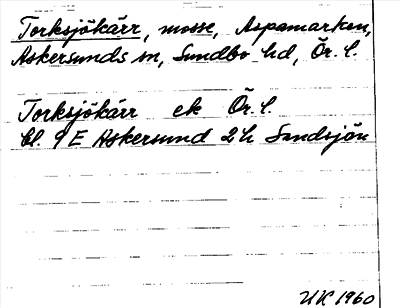 Torksjökärr, mosse, Aspamarken,
Askersunds sn, Sundbo hd, Ör. l.
Torksjökärr ek Ör. l.
bl. 9 E Askersund 2h Sondsjön
UK 1960